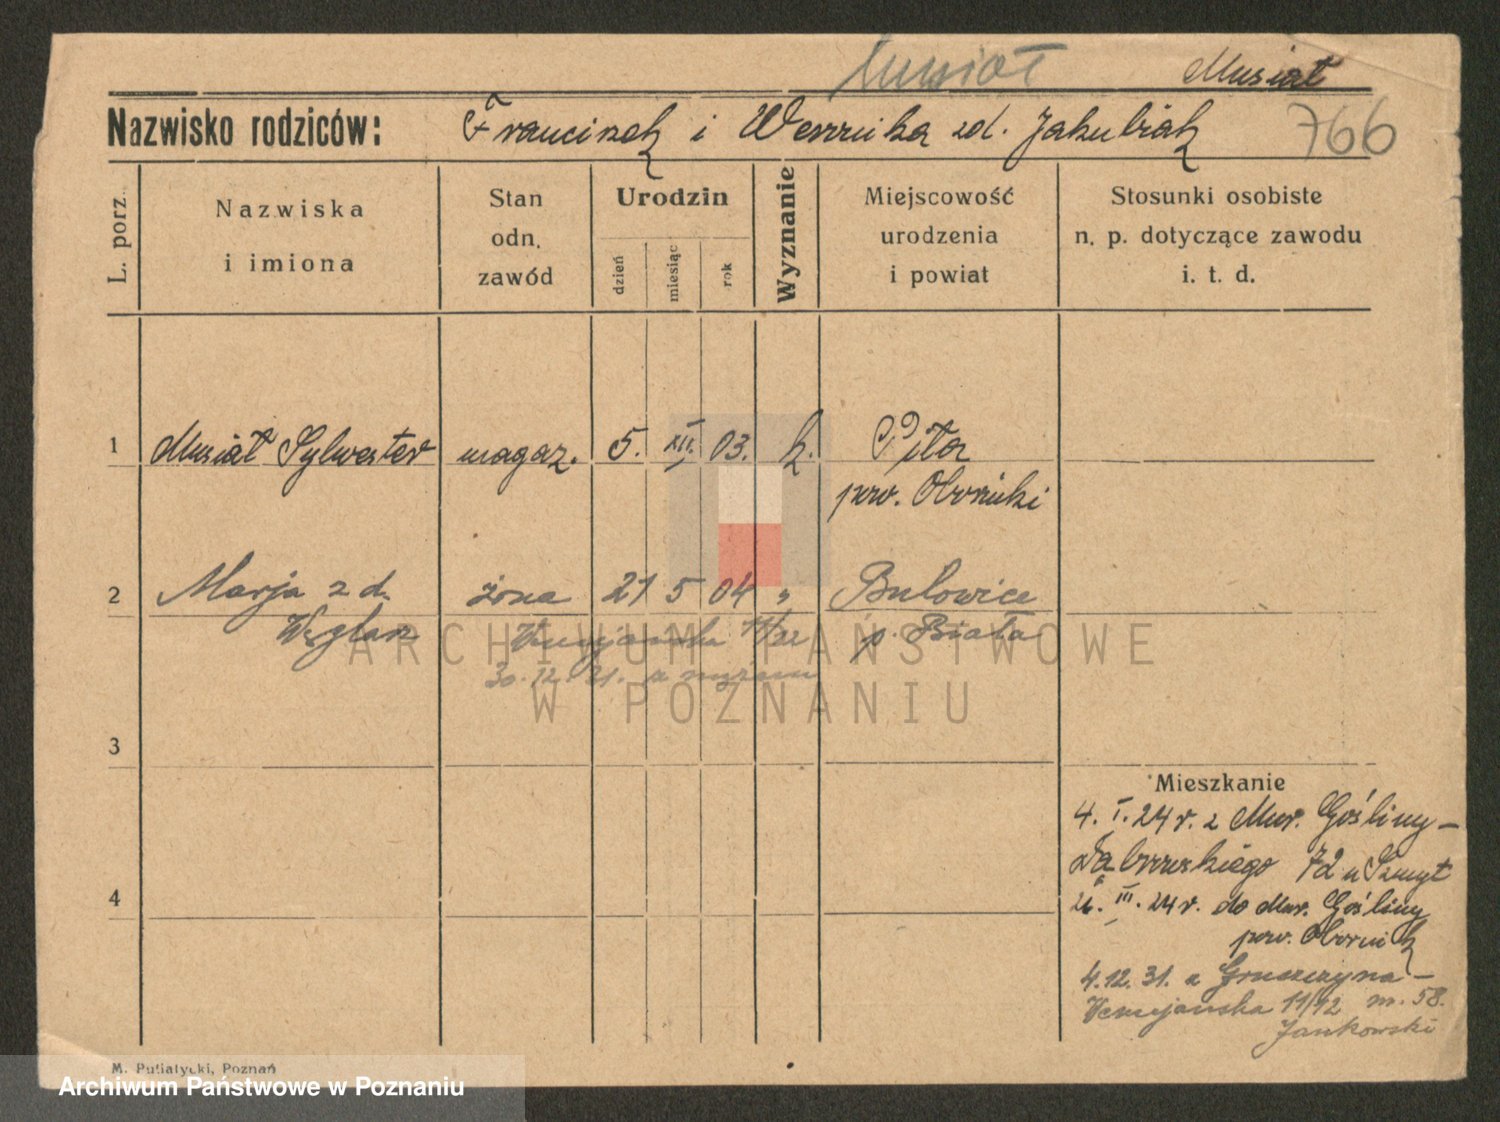 Musiał Musiał
Nazwisko rodziców: Franciszek i Weronika zd. Jakubiak 766
L. porz.
Nazwiska
i imiona
Stan
odn.
zawód
Urodzin
dzień
miesiąc
rok
Wyznanie
Miejscowość
urodzenia
i powiat
Stosunki osobiste
n. p. dotyczące zawodu
i. t. d.
1 Musiał Sylwester magaz. 5. XII. 03. k. Piła
pow. Oborniki
2 Marja z d. żona 21 5 04 " Bulowice
Węglarz p. Biała
Wenecjańska 11/12
30.12.31. z mężem
3
Mieszkanie
4. I. 24 r. z Mur. Gośliny –
Dąbrowskiego 72 u Szmyt
4
26. III. 24 r. do Mur. Gośliny
pow. Obornik
4.12.31. z Gruszczyna –
Wenecjańska 11/12 m. 58.
Jankowski
M. Putiatycki, Poznań
ARCHIWUM PAŃSTWOWE
W POZNANIU
Archiwum Państwowe w Poznaniu